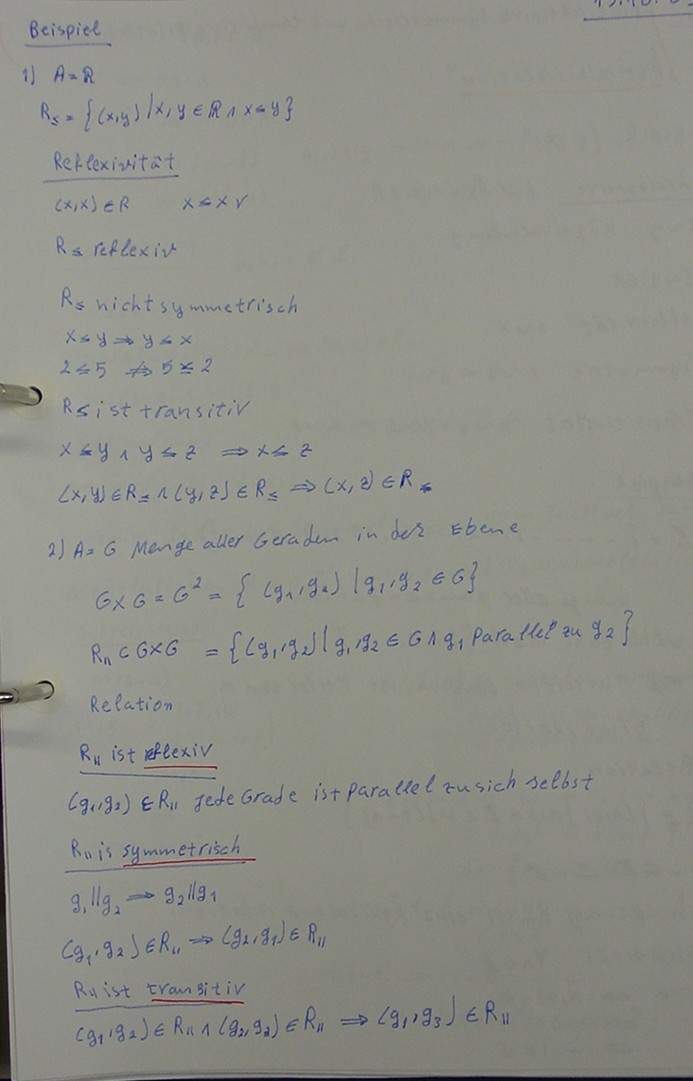 Beispiel
1) A=ℝ
R≤ = {(x,y) | x,y ∈ ℝ ∧ x≤y}
Reflexivität
(x,x) ∈ R x≤x √
R≤ reflexiv
R≤ nicht symmetrisch
x≤y ⇒ y≤x
2≤5 ⇏ 5≤2
R≤ ist transitiv
x≤y ∧ y≤z ⇒ x≤z
(x,y) ∈ R≤ ∧ (y,z) ∈ R≤ ⇒ (x,z) ∈ R≤
2) A=G Menge aller Geraden in der Ebene
G×G = G² = { (g₁,g₂) | g₁,g₂ ∈ G}
R∥ ⊂ G×G = {(g₁,g₂) | g₁,g₂ ∈ G ∧ g₁ Parallel zu g₂}
Relation
R∥ ist reflexiv
(g₁,g₂) ∈ R∥ Jede Grade ist Parallel zu sich selbst
R∥ is symmetrisch
g₁∥g₂ ⇒ g₂∥g₁
(g₁,g₂) ∈ R∥ ⇒ (g₂,g₁) ∈ R∥
R∥ ist transitiv
(g₁,g₂) ∈ R∥ ∧ (g₂,g₃) ∈ R∥ ⇒ (g₁,g₃) ∈ R∥